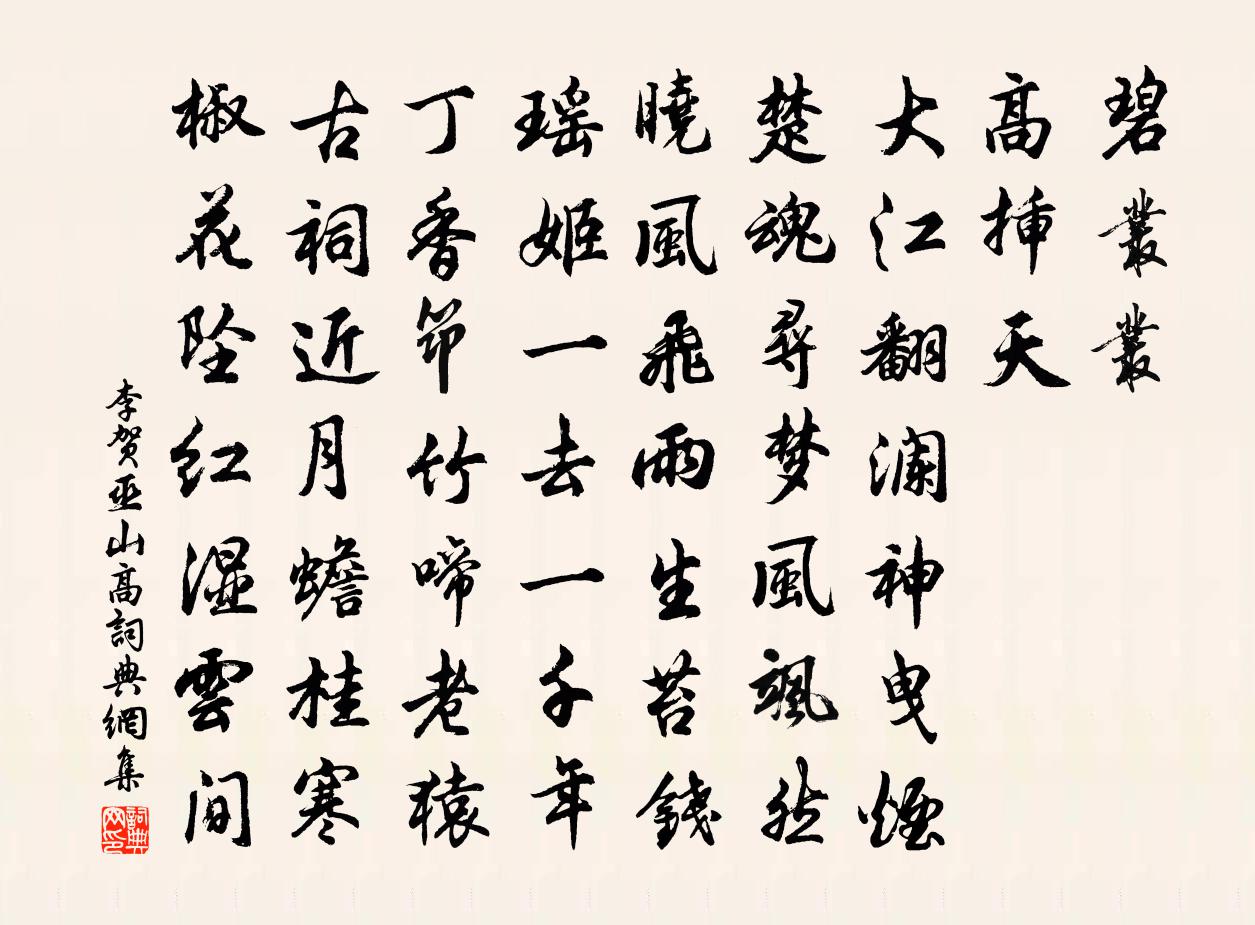 碧叢叢
高挿天
大江翻瀾神曳煙
楚魂尋梦風颯然
曉風飛雨生苔錢
瑶姬一去一千年
丁香笻竹啼老猿
古祠近月蟾桂寒
椒花坠红濕雲间
李贺巫山高詞典網集
詞典网印